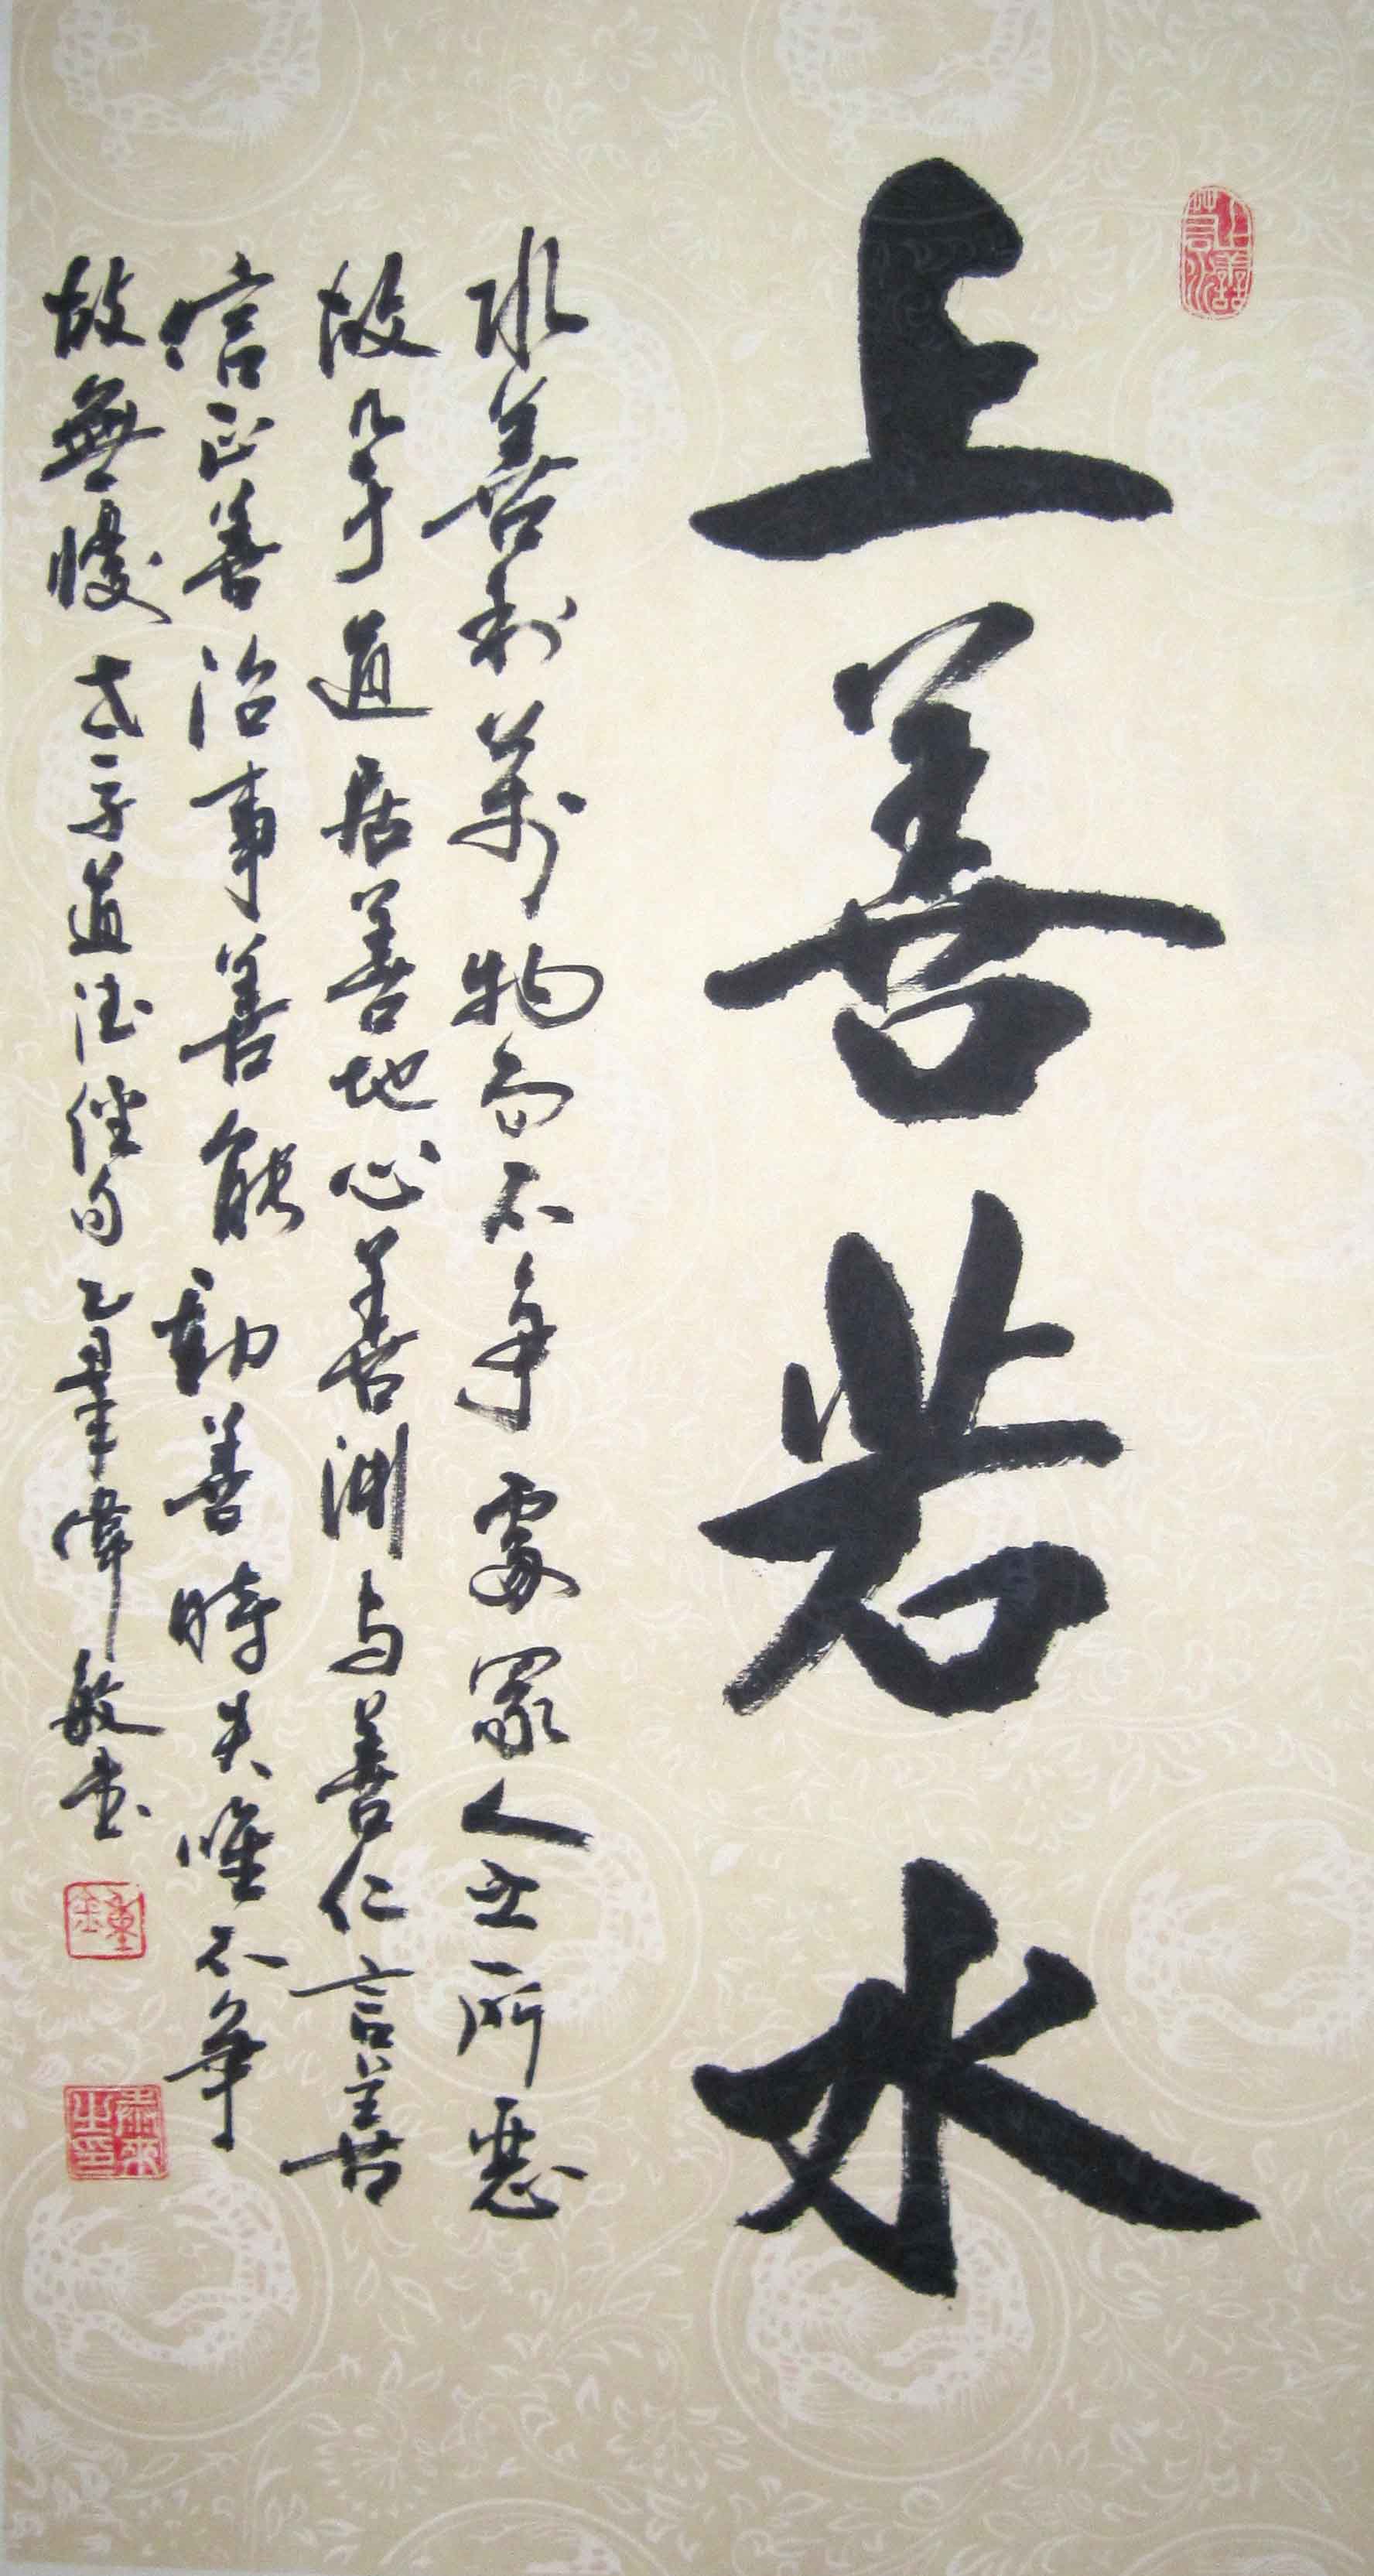 上善若水
水善利萬物而不爭處眾人之所惡
故几于道居善地心善渊与善仁言善
信正善治事善能動善時夫唯不争
故無憂老子道德經句乙丑年偉敏书
上善若水